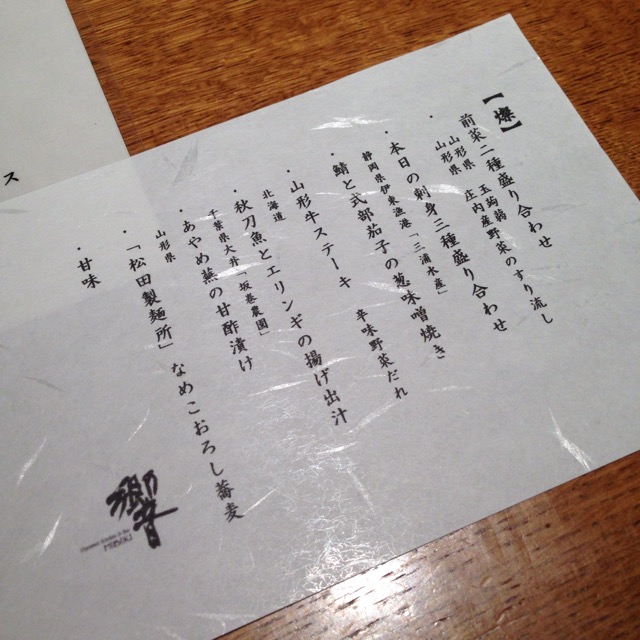 【燦】
・前菜二種盛り合わせ
山形県 玉蒟蒻
山形県 庄内産野菜のすり流し
・本日の刺身二種盛り合わせ
静岡県伊東漁港「三浦水産」
・鯖と式部茄子の葱味噌焼き
・山形牛ステーキ 辛味野菜だれ
北海道
・秋刀魚とエリンギの揚げ出汁
千葉県大井 坂巻農園
・あやめ蕪の甘酢漬け
山形県
・「松田製麺所」なめこおろし蕎麦
・甘味
響
HIBIKI
ス